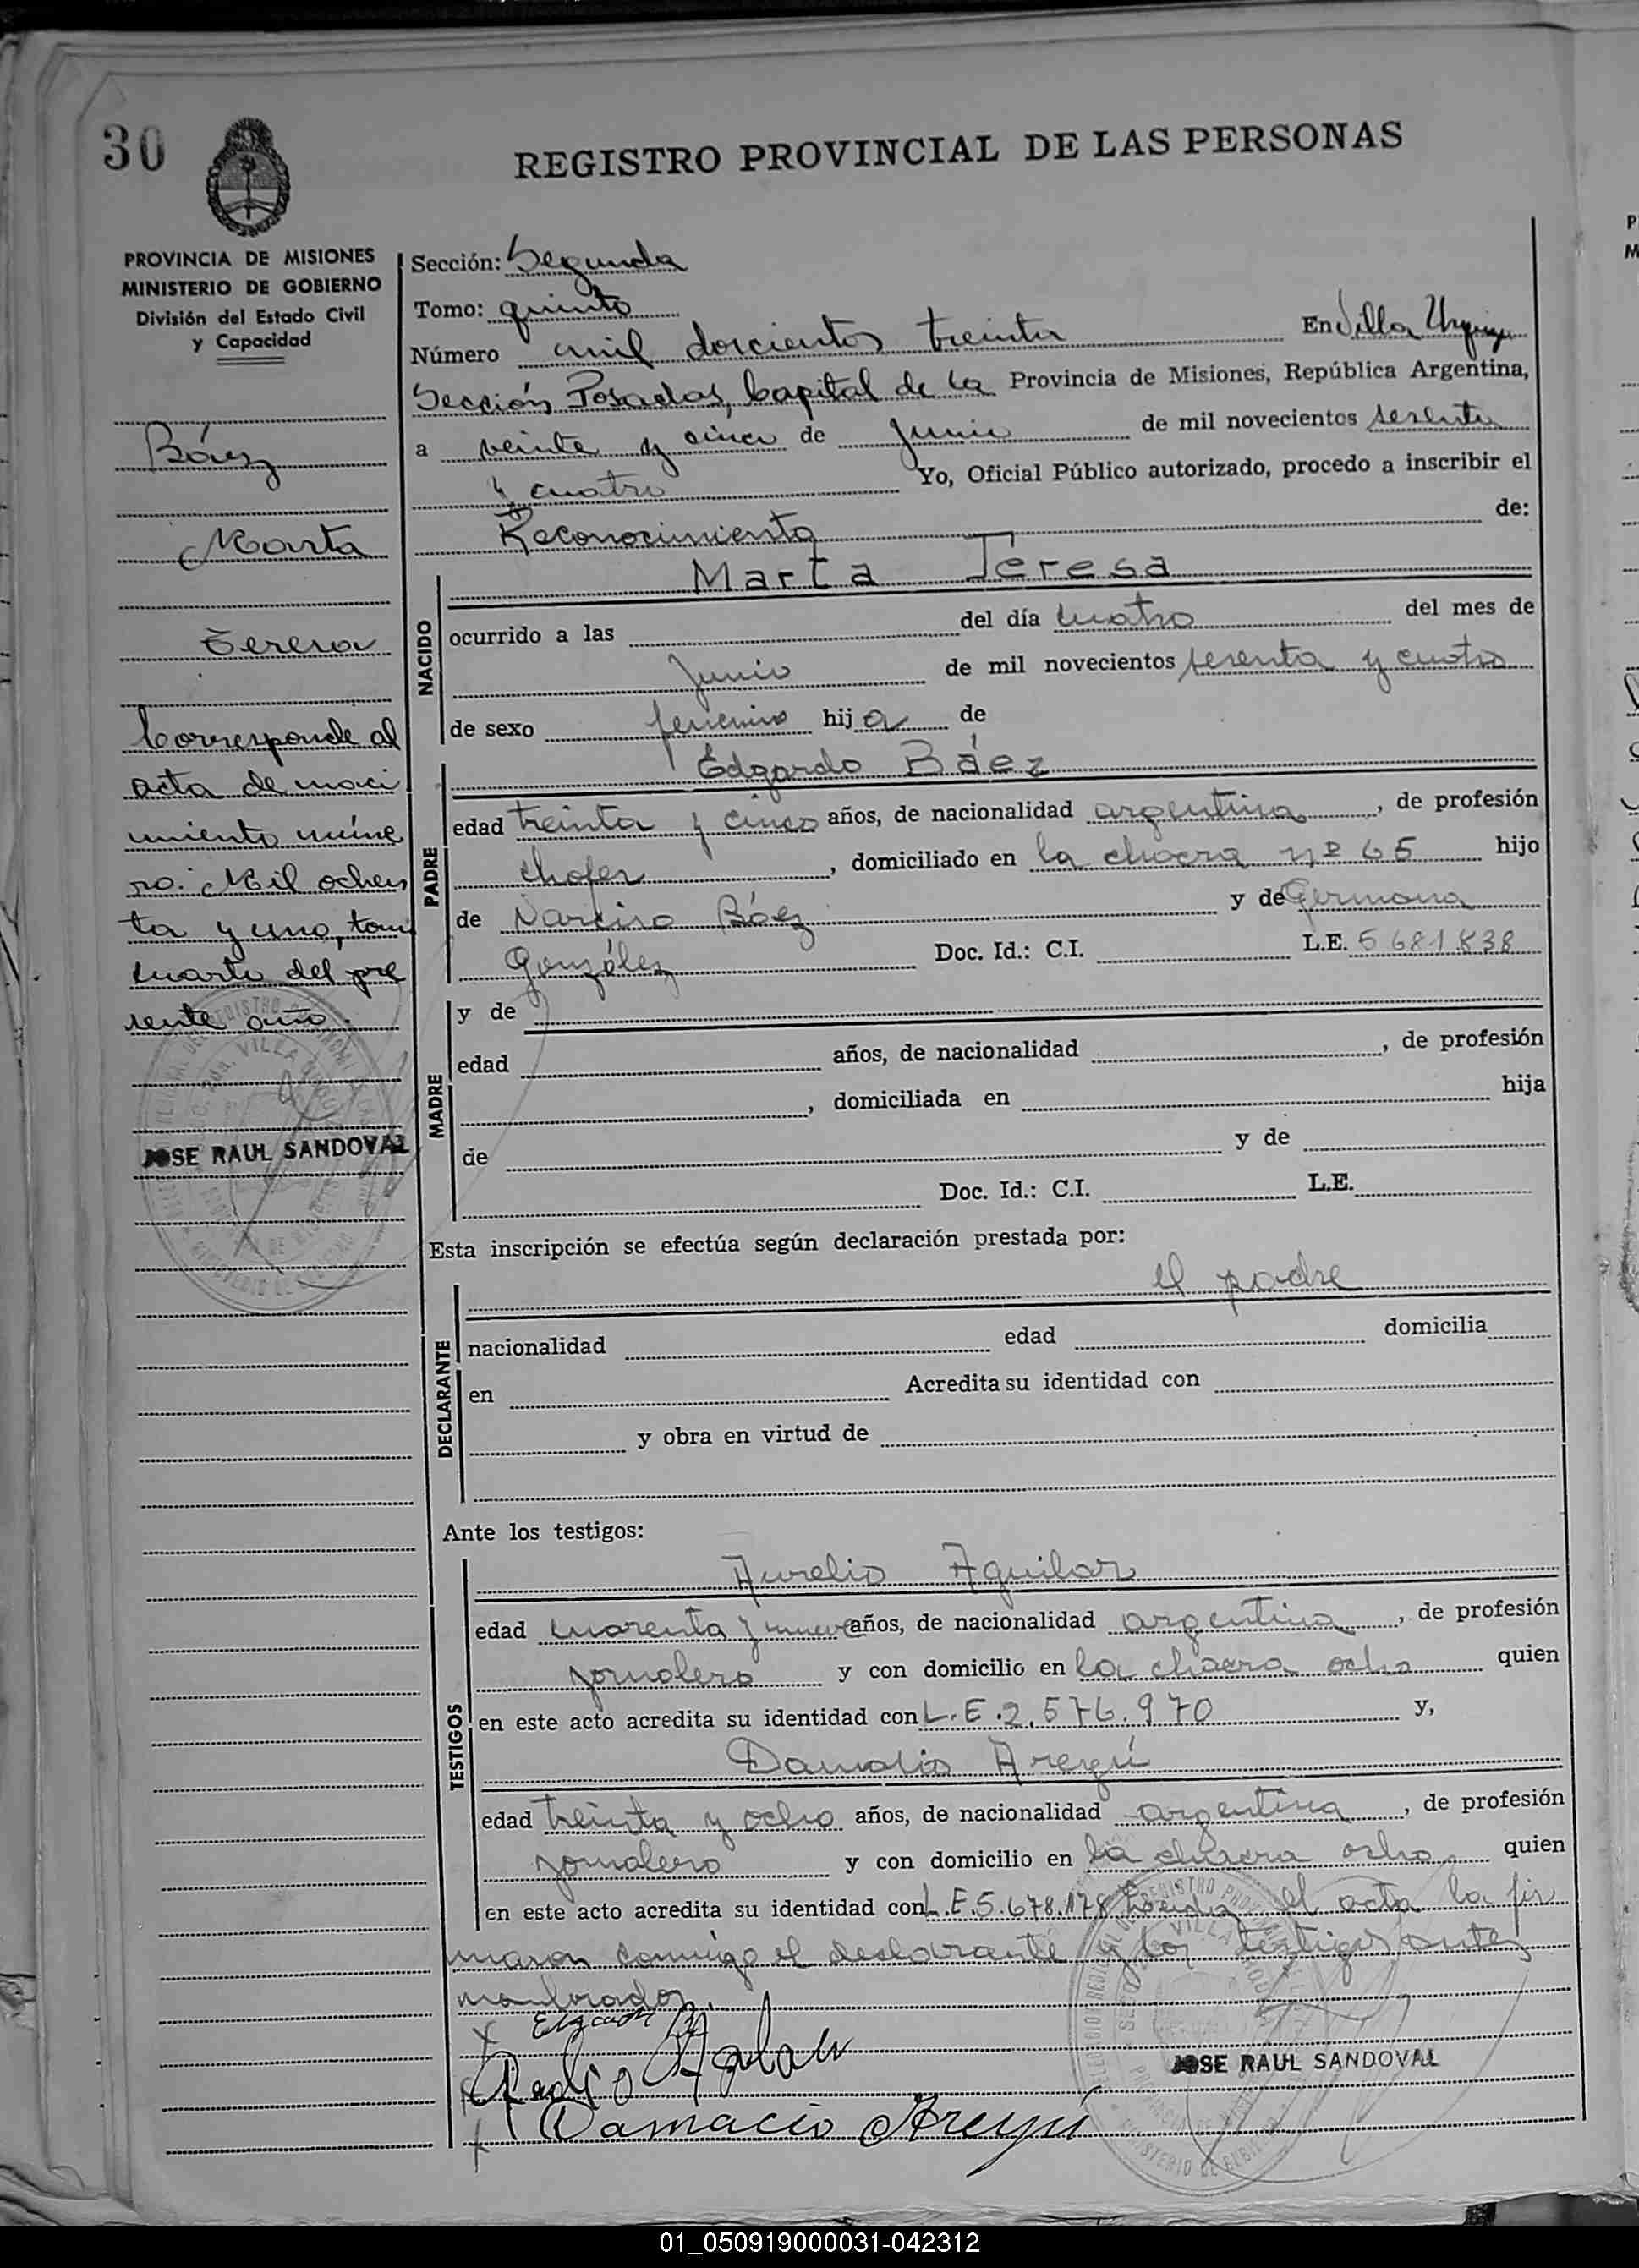 30
REGISTRO PROVINCIAL DE LAS PERSONAS
PROVINCIA DE MISIONES
MINISTERIO DE GOBIERNO
División del Estado Civil
y Capacidad
Báez
Marta
Teresa
Corresponde al
acta de naci
miento núme
ro. Mil ochen
ta y uno, tomo
cuarto del pre
sente año
JOSE RAUL SANDOVAL
Sección: Segunda
Tomo: quinto
Número mil doscientos treinta En Villa Urquiza
Sección Posadas, Capital de la Provincia de Misiones, República Argentina,
a veinte y cinco de Junio de mil novecientos sesenta
y cuatro Yo, Oficial Público autorizado, procedo a inscribir el
Reconocimiento de:
Marta Teresa
NACIDO
ocurrido a las del día cuatro del mes de
Junio de mil novecientos sesenta y cuatro
de sexo femenino hija de
Edgardo Báez
PADRE
edad treinta y cinco años, de nacionalidad argentina, de profesión
chofer, domiciliado en la chacra nº 65 hijo
de Narciso Báez y de Germana
González Doc. Id.: C.I. L.E. 5681.838
MADRE
y de
edad años, de nacionalidad , de profesión
, domiciliada en hija
de y de
Doc. Id.: C.I. L.E.
Esta inscripción se efectúa según declaración prestada por:
el padre
DECLARANTE
nacionalidad edad domicilia
en Acredita su identidad con
y obra en virtud de
Ante los testigos:
TESTIGOS
Aurelio Aguilar
edad cuarenta y nueve años, de nacionalidad argentina, de profesión
jornalero y con domicilio en la chacra ocho quien
en este acto acredita su identidad con L.E. 2.576.970 y,
Damasio Areyú
edad treinta y ocho años, de nacionalidad argentina, de profesión
jornalero y con domicilio en la chacra ocho quien
en este acto acredita su identidad con L.E. 5.678.178 el acta la fir
maron conmigo el declarante y los testigos antes
nombrados.
JOSE RAUL SANDOVAL
Damacio Areyú
01_050919000031-042312